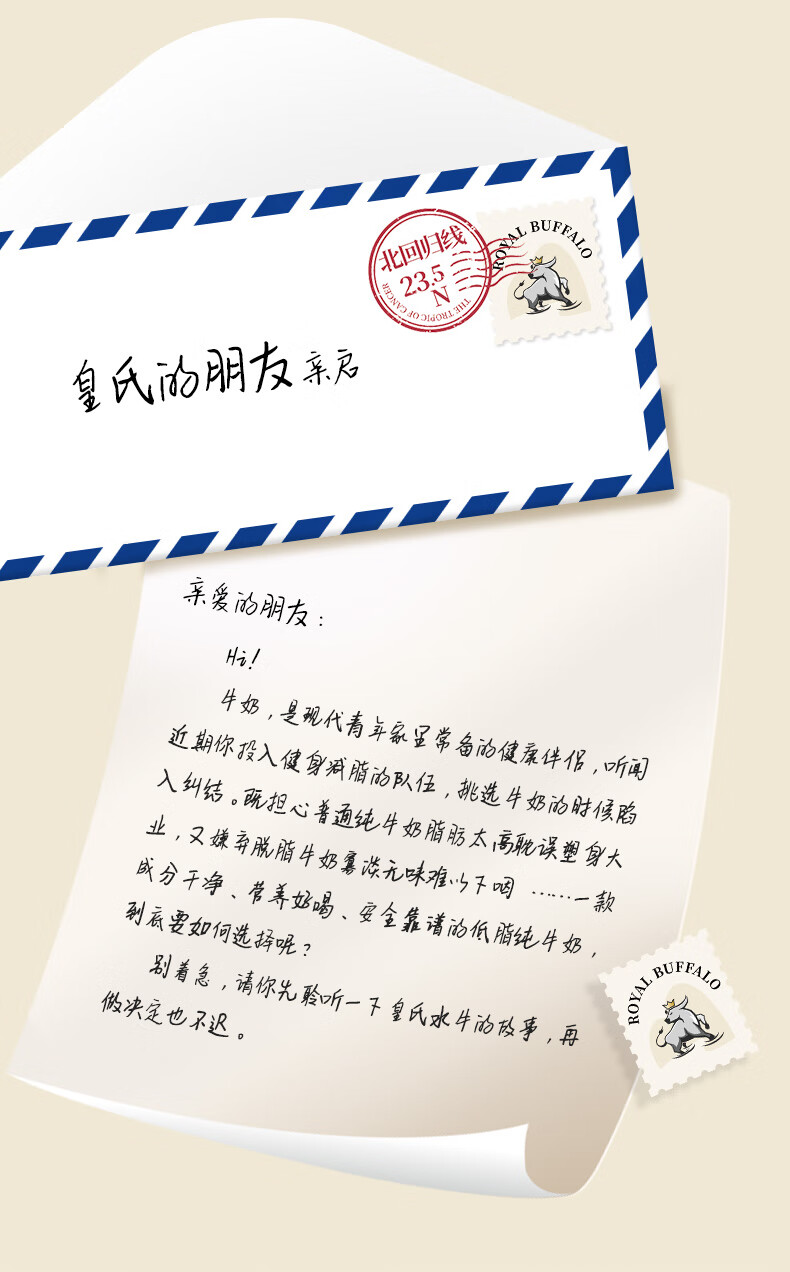 北回归线
23.5
N
THE TROPIC OF CANCER
ROYAL BUFFALO
皇氏的朋友 亲启
亲爱的朋友：
Hi!
牛奶，是现代青年家里常备的健康伴侣，听闻
近期你投入健身减脂的队伍，挑选牛奶的时候陷
入纠结。既担心普通纯牛奶脂肪太高耽误塑身大
业，又嫌弃脱脂牛奶寡淡无味难以下咽……一款
成分干净、营养好喝、安全靠谱的低脂纯牛奶，
到底要如何选择呢？
别着急，请你先聆听一下皇氏水牛的故事，再
做决定也不迟。
ROYAL BUFFALO